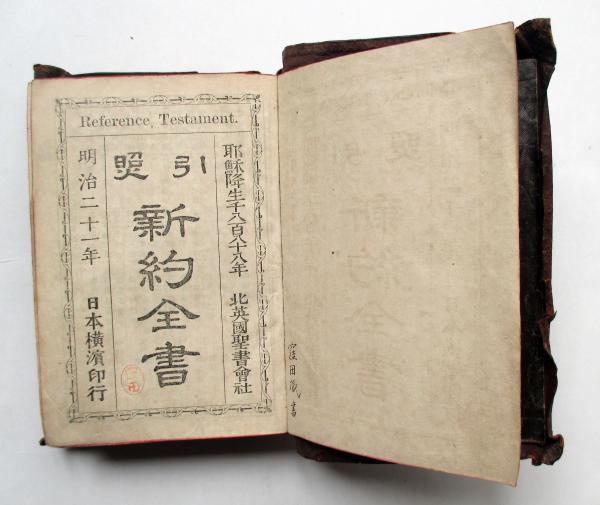 Reference, Testament.
耶穌降生千八百八十八年　北英國聖書會社
引照
新約全書
明治二十一年　日本橫濱印行
窪田蔵書